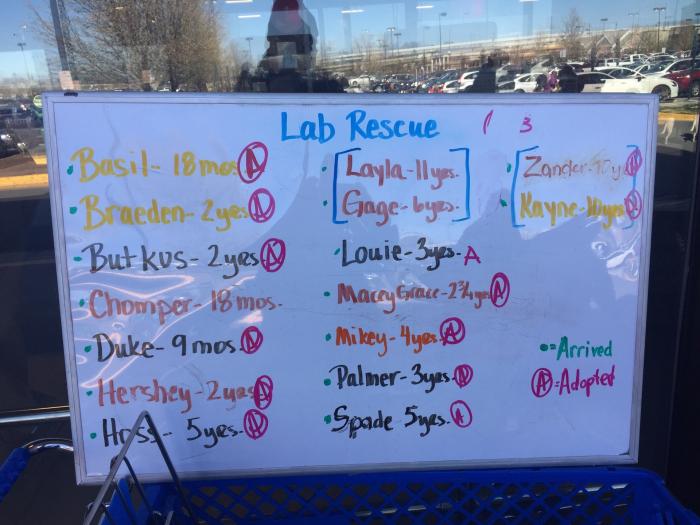 Lab Rescue
( 3
• Basil - 18 mos. A
• Braeden - 2 yrs. A
• Butkus - 2 yrs A
Chomper - 18 mos.
• Duke - 9 mos. A
• Hershey - 2 yrs A
• Hoss - 5 yrs. A
• Layla - 11 yrs.
• Gage - 6 yrs.
• Louie - 3 yrs. A
• Macey Grace - 2 3/4 yrs A
• Mikey - 4 yrs. A
• Palmer - 3 yrs. A
• Spade 5 yrs. A
• Zander - A
• Kayne - 10 yrs. A
• = Arrived
A = Adopted